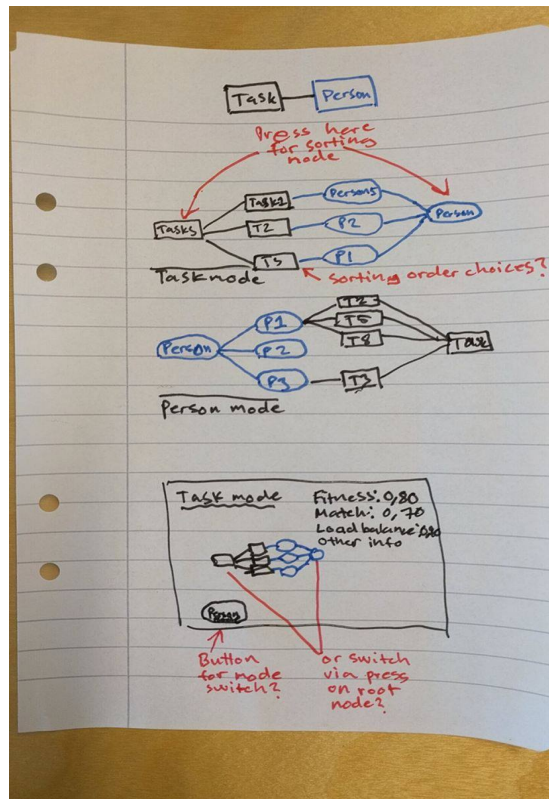 Task Person
Press here
for sorting
node
Tasks Task1 Person5 Person
T2 P2
T5 P1
Task mode
sorting order choices?
Person P1 T2 Task
T5
P2 T8
P3 T3
Person mode
Task mode
Fitness: 0,80
Match: 0,70
Load balance: 0,90
Other info
Person
Button
for mode
switch?
or switch
via press
on root
node?